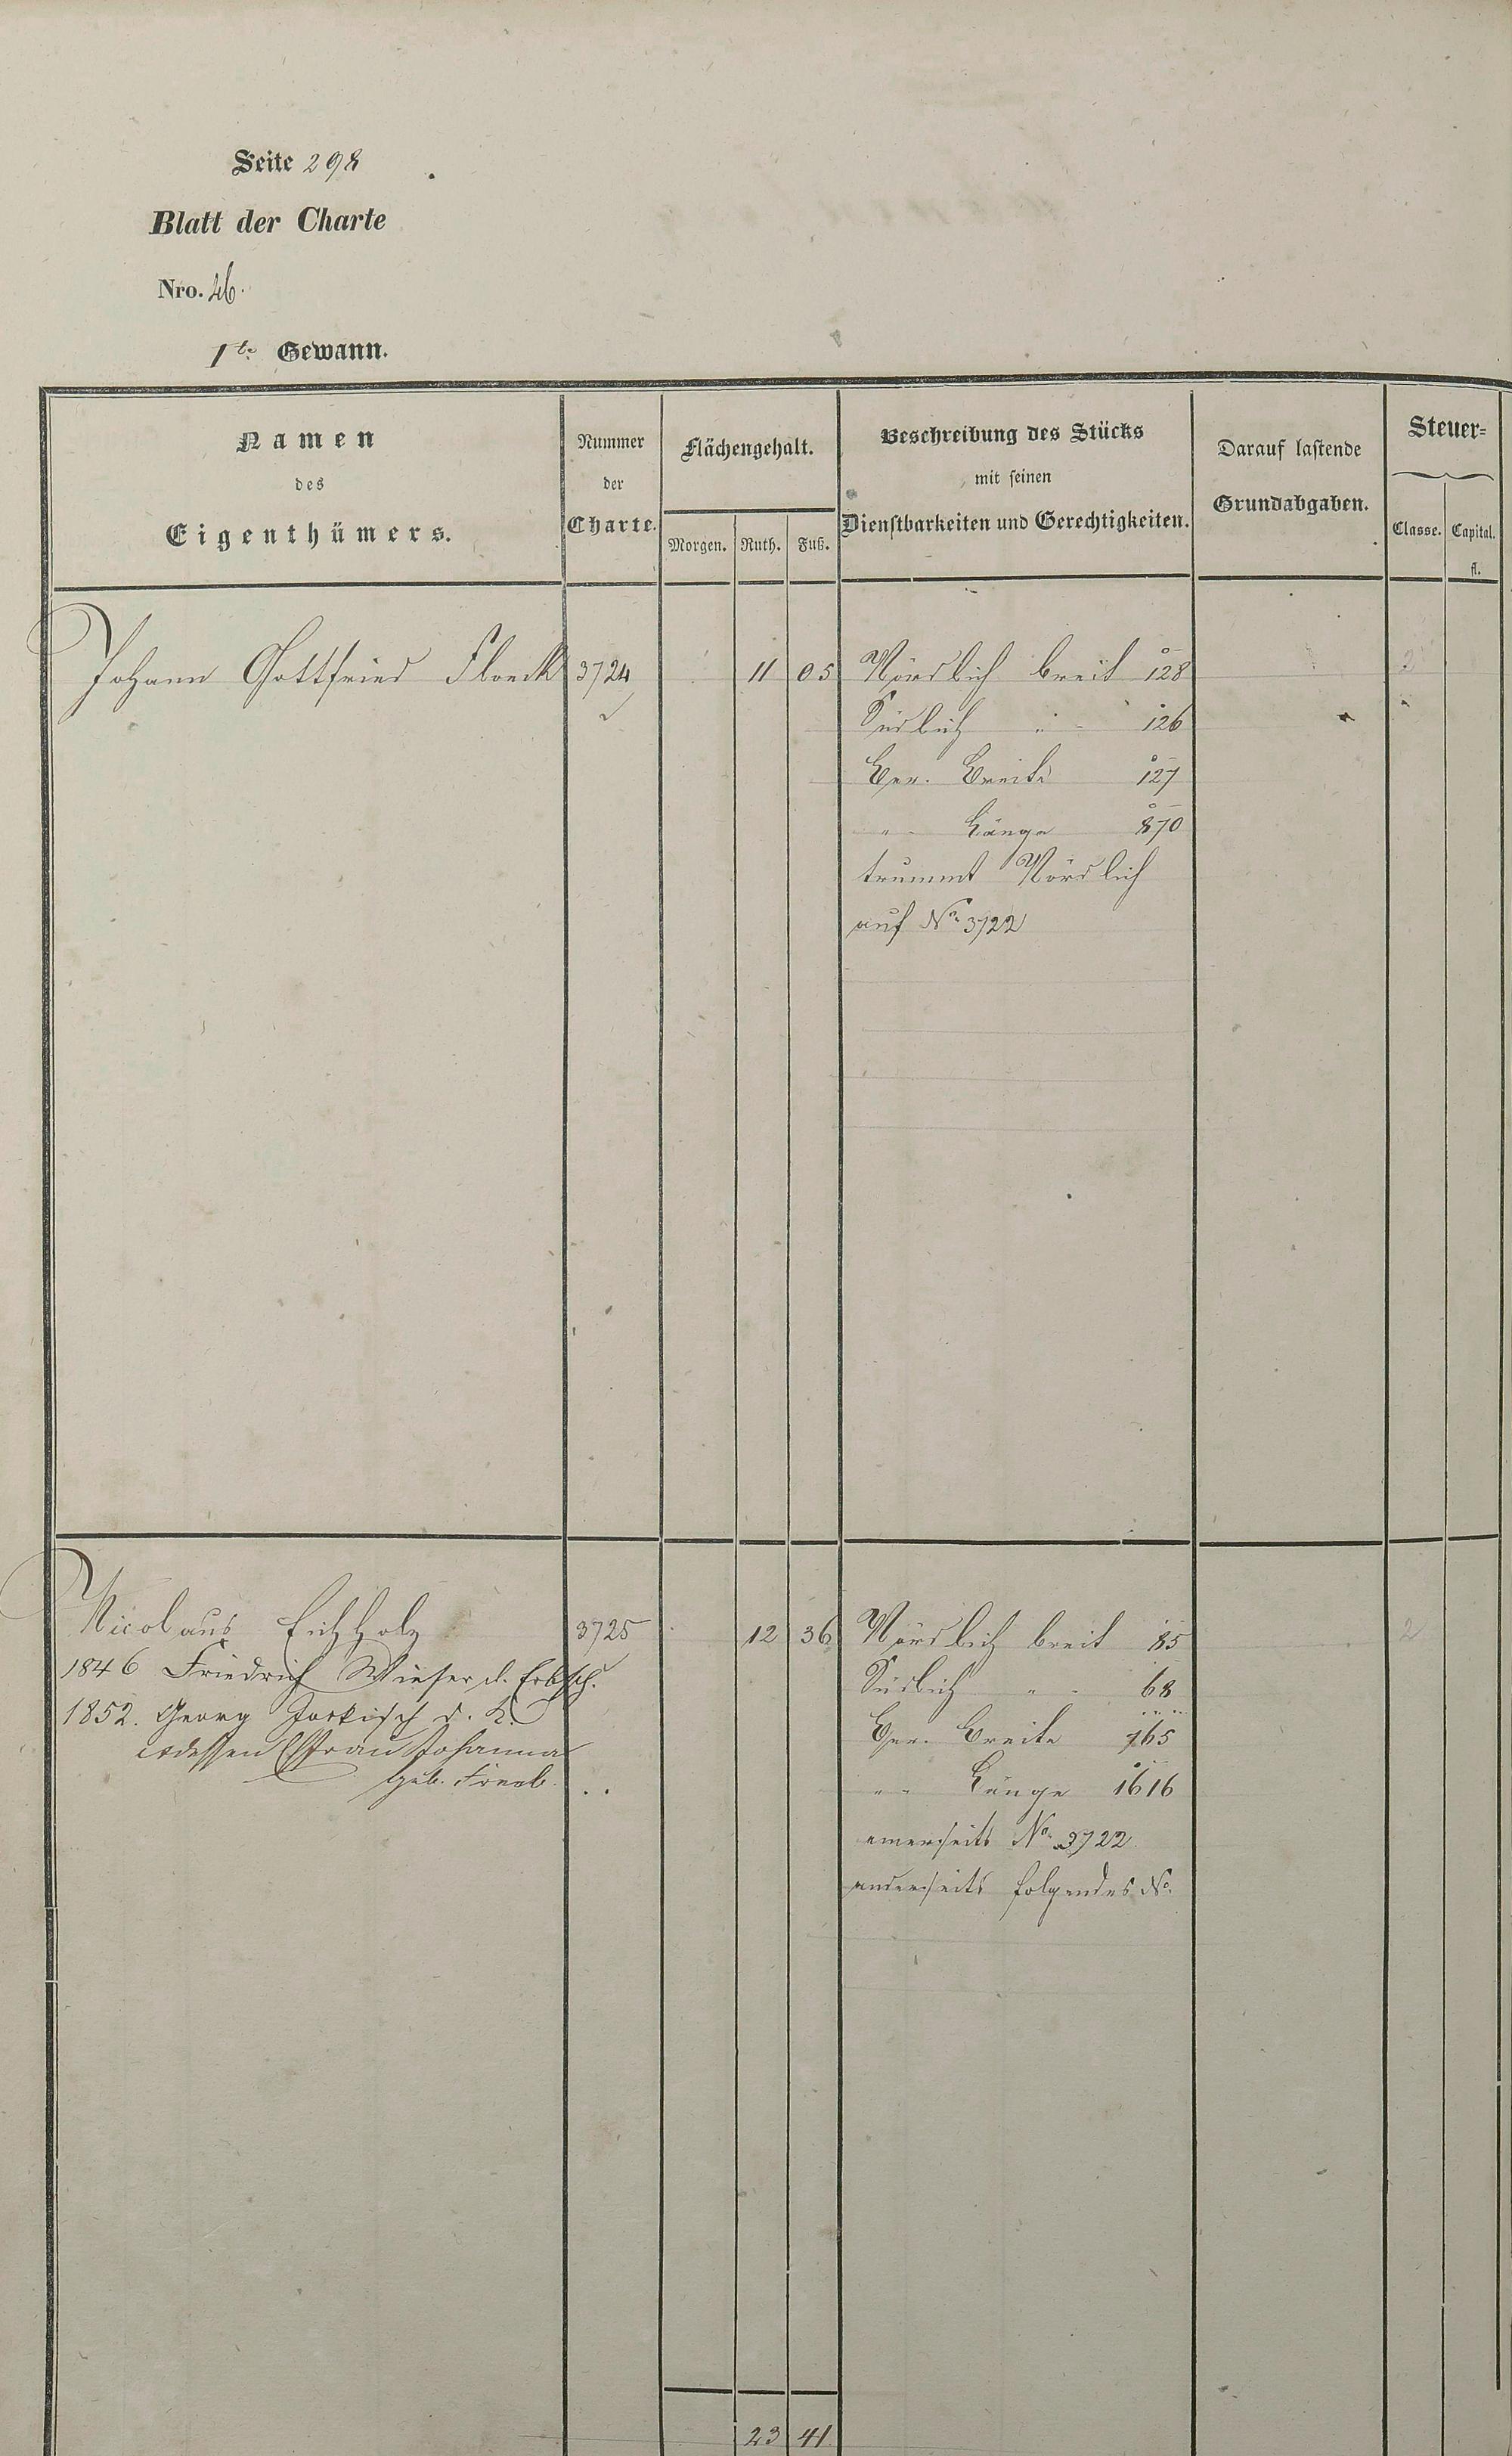 Seite 298
Blatt der Charte
Nro. 46.
1te Gewann.
Namen
des
Eigenthümers.
Nummer
der
Charte.
Flächengehalt.
Morgen. Ruth. Fuß.
Beschreibung des Stücks
mit seinen
Dienstbarkeiten und Gerechtigkeiten.
Darauf lastende
Grundabgaben.
Steuer=
Classe. Capital.
fl.
Johann Gottfried Floeck 3724 11 05 Nördlich breit 128 2
Südlich " 126
Gen. Breite 127
" Länge 870
trummt Nördlich
auf No 3722
Nicolaus Eichholz 3725 12 36 Nördlich breit 85 2
1846 Friedrich Wieser d. Erbsch.
Südlich " 68
1852. Georg d. K.
Gen. Breite 765
Frau Johanna
geb.
" Länge 1616
einerseits No 3722
anderseits folgendes No
23 41